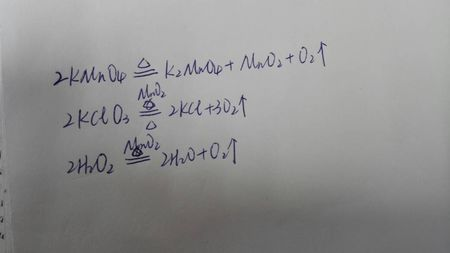 2KMnO4 ≜ K2MnO4 + MnO2 + O2↑
2KClO3 MnO2 ≜ △ 2KCl+3O2↑
2H2O2 MnO2 ═ 2H2O+O2↑